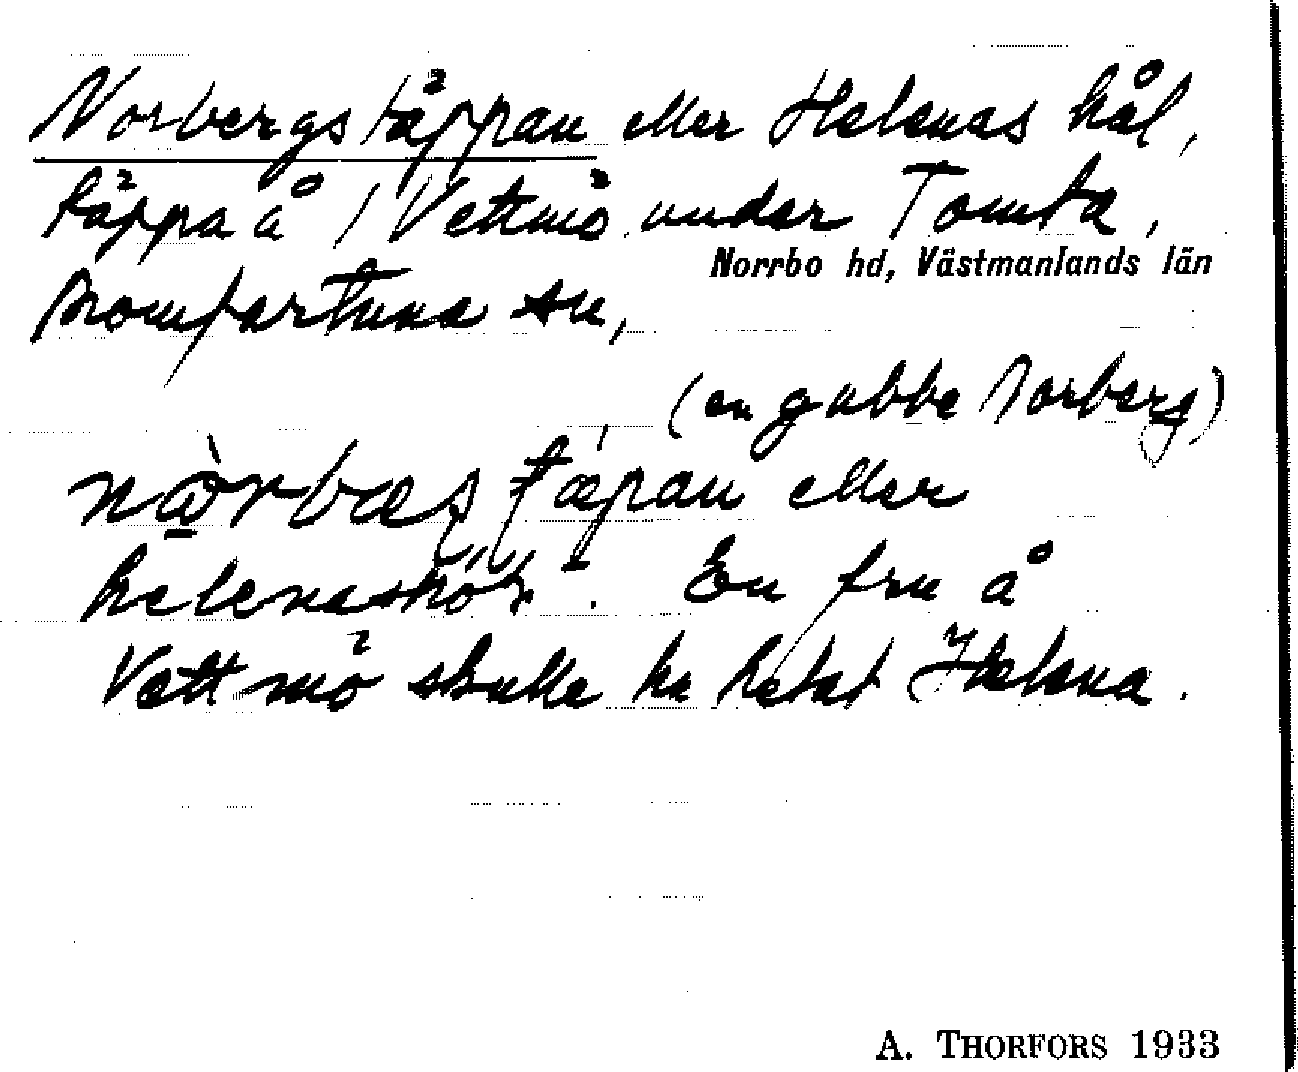 Norbergstäppan eller Helenas hål,
täppa å / Vettmö under Tomta,
Norrbo hd, Västmanlands län
Romfartuna sn,
(en gubbe Norberg)
täpan eller
En fru å
Vettmö skulle ha hetat Helena.
A. THORFORS 1933